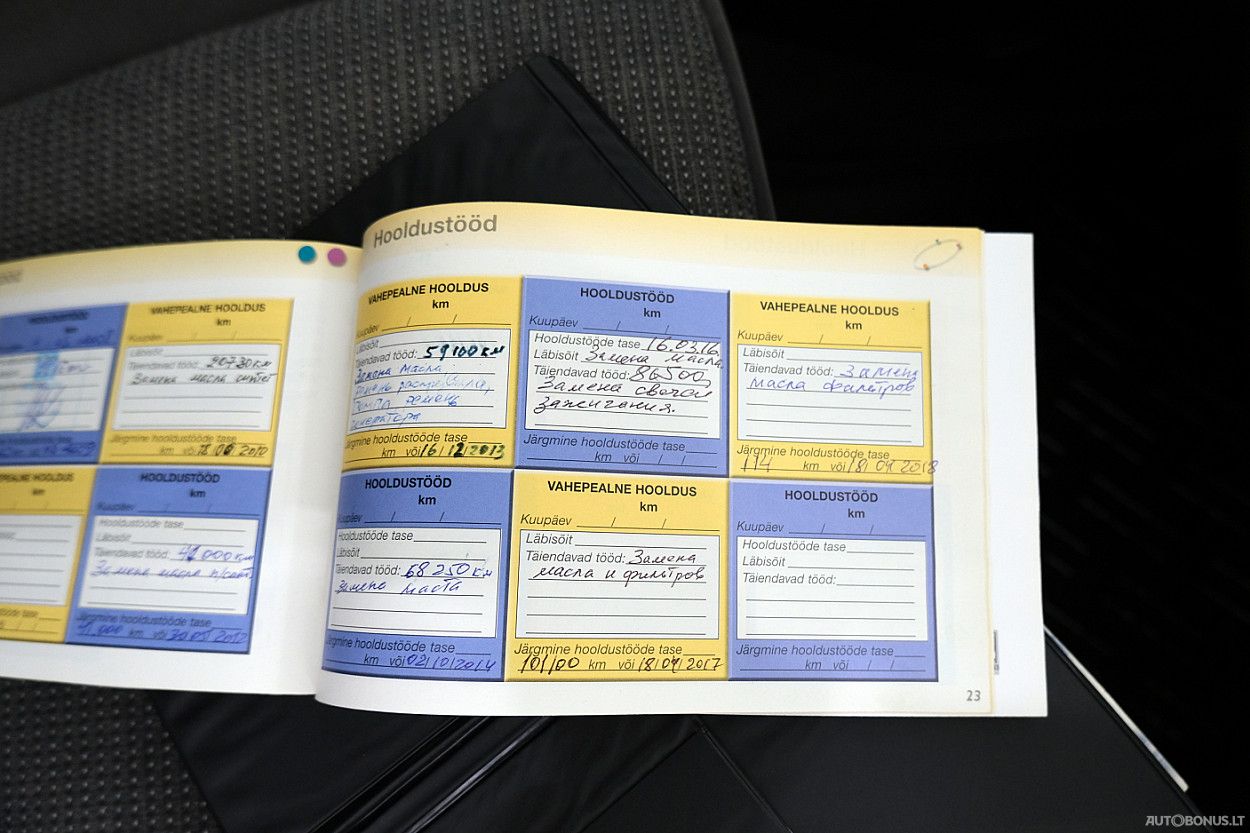 Hooldustööd
HOOLDUSTÖÖD
km
VAHEPEALNE HOOLDUS
km
Kuupäev / /
Läbisõit
Täiendavad tööd: 20730 км
Замена масла
Järgmine hooldustööde tase
km või 2010
VAHEPEALNE HOOLDUS
HOOLDUSTÖÖD
km
Kuupäev / /
Hooldustööde tase
Läbisõit
Täiendavad tööd:
Замена масла
Järgmine hooldustööde tase
km või 2012
VAHEPEALNE HOOLDUS
km
Kuupäev / /
Läbisõit
Täiendavad tööd: 59100 км
Замена масла
ремень
Järgmine hooldustööde tase
km või 16/12/2013
HOOLDUSTÖÖD
km
Kuupäev / /
Hooldustööde tase 16.03.16
Läbisõit Замена масла.
Täiendavad tööd: 86500,
Замена свечей
зажигания.
Järgmine hooldustööde tase
km või / /
VAHEPEALNE HOOLDUS
km
Kuupäev / /
Läbisõit
Täiendavad tööd: Замена
масла фильтров
Järgmine hooldustööde tase
114 km või 18/04/2018
HOOLDUSTÖÖD
km
Kuupäev / /
Hooldustööde tase
Läbisõit
Täiendavad tööd: 68250 км
Замена масла
Järgmine hooldustööde tase
km või 02/10/2014
VAHEPEALNE HOOLDUS
km
Kuupäev / /
Läbisõit
Täiendavad tööd: Замена
масла и фильтров
Järgmine hooldustööde tase
101100 km või 18/04/2017
HOOLDUSTÖÖD
km
Kuupäev / /
Hooldustööde tase
Läbisõit
Täiendavad tööd:
Järgmine hooldustööde tase
km või / /
23
AUTOBONUS.LT